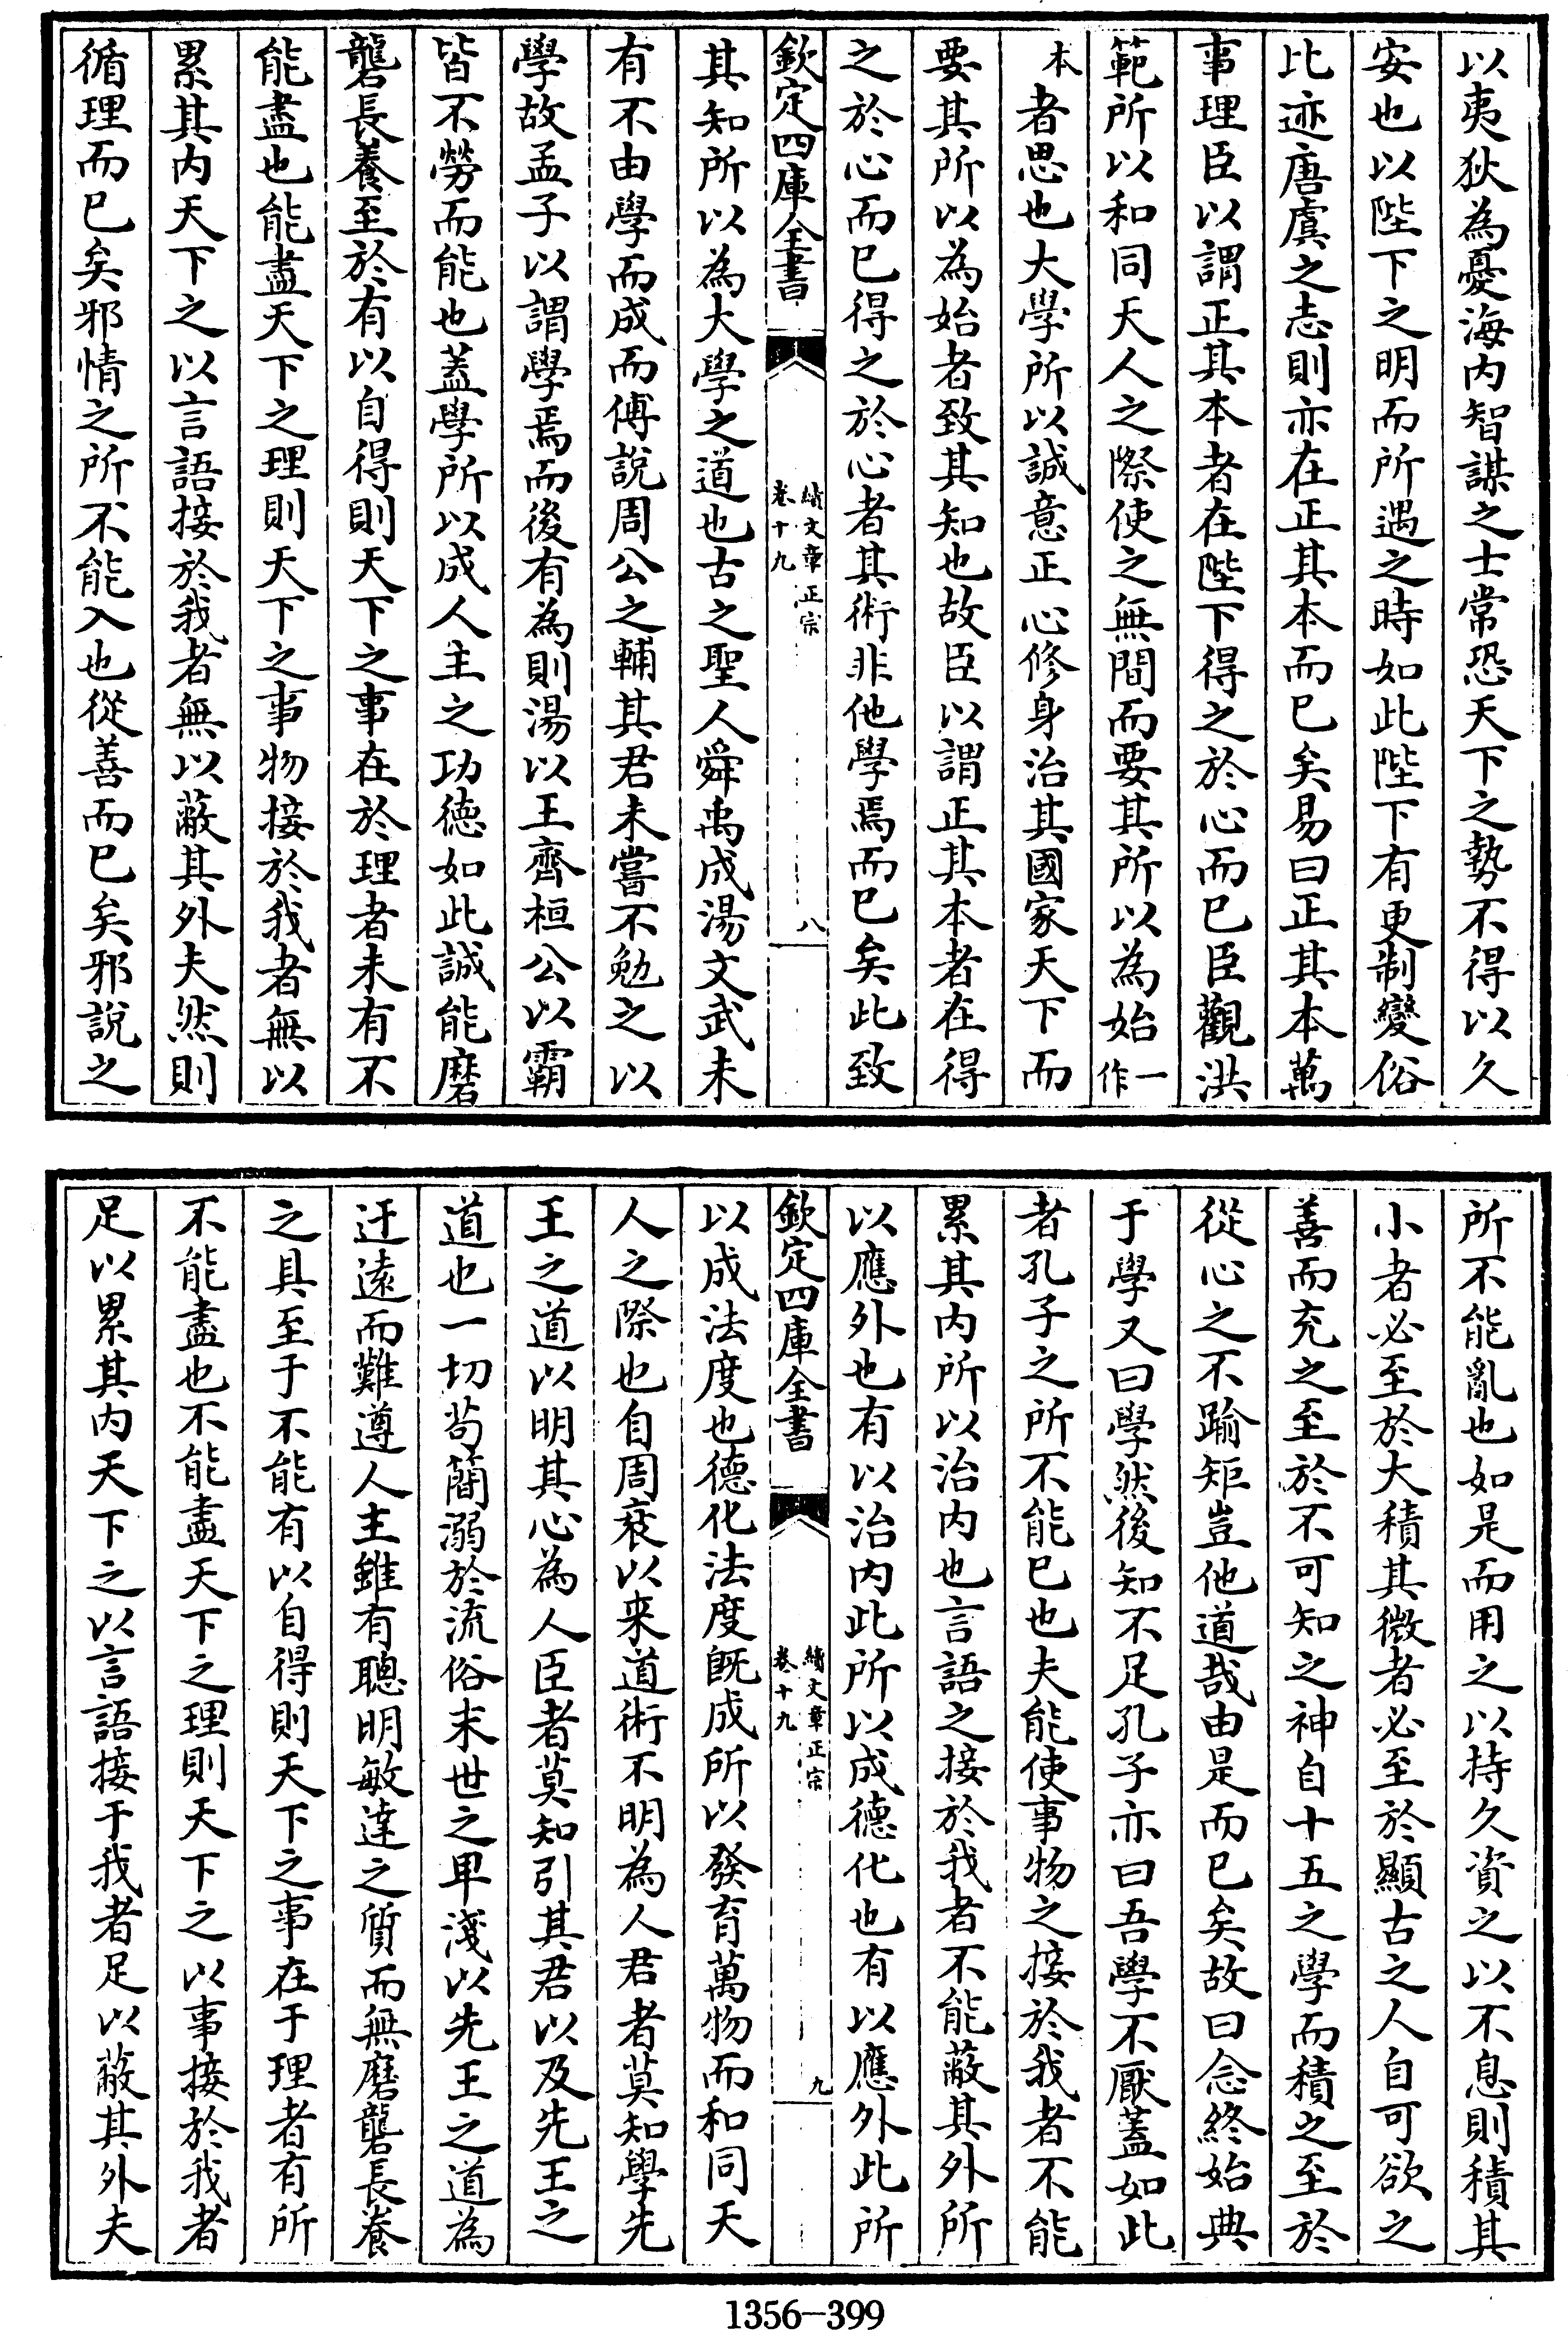 以夷狄為憂海内智謀之士常恐天下之勢不得以久
安也以陛下之明而所遇之時如此陛下有更制變俗
比迹唐虞之志則亦在正其本而已矣易曰正其本萬
事理臣以謂正其本者在陛下得之於心而已臣觀洪
範所以和同天人之際使之無間而要其所以為始一作
本者思也大學所以誠意正心修身治其國家天下而
要其所以為始者致其知也故臣以謂正其本者在得
之於心而已得之於心者其術非他學焉而已矣此致
欽定四庫全書
續文章正宗
卷十九
八
其知所以為大學之道也古之聖人舜禹成湯文武未
有不由學而成而傅說周公之輔其君未嘗不勉之以
學故孟子以謂學焉而後有為則湯以王齊桓公以霸
皆不勞而能也蓋學所以成人主之功德如此誠能磨
礲長養至於有以自得則天下之事在於理者未有不
能盡也能盡天下之理則天下之事物接於我者無以
累其内天下之以言語接於我者無以蔽其外夫然則
循理而已矣邪情之所不能入也從善而已矣邪說之
所不能亂也如是而用之以持久資之以不息則積其
小者必至於大積其微者必至於顯古之人自可欲之
善而充之至於不可知之神自十五之學而積之至於
從心之不踰矩豈他道哉由是而已矣故曰念終始典
于學又曰學然後知不足孔子亦曰吾學不厭蓋如此
者孔子之所不能已也夫能使事物之接於我者不能
累其内所以治内也言語之接於我者不能蔽其外所
以應外也有以治内此所以成德化也有以應外此所
欽定四庫全書
續文章正宗
卷十九
九
以成法度也德化法度既成所以發育萬物而和同天
人之際也自周衰以来道術不明為人君者莫知學先
王之道以明其心為人臣者莫知引其君以及先王之
道也一切苟簡溺於流俗末世之卑淺以先王之道為
迂遠而難遵人主雖有聰明敏達之質而無磨礲長養
之具至于不能有以自得則天下之事在于理者有所
不能盡也不能盡天下之理則天下之以事接於我者
足以累其内天下之以言語接于我者足以蔽其外夫
1356-399